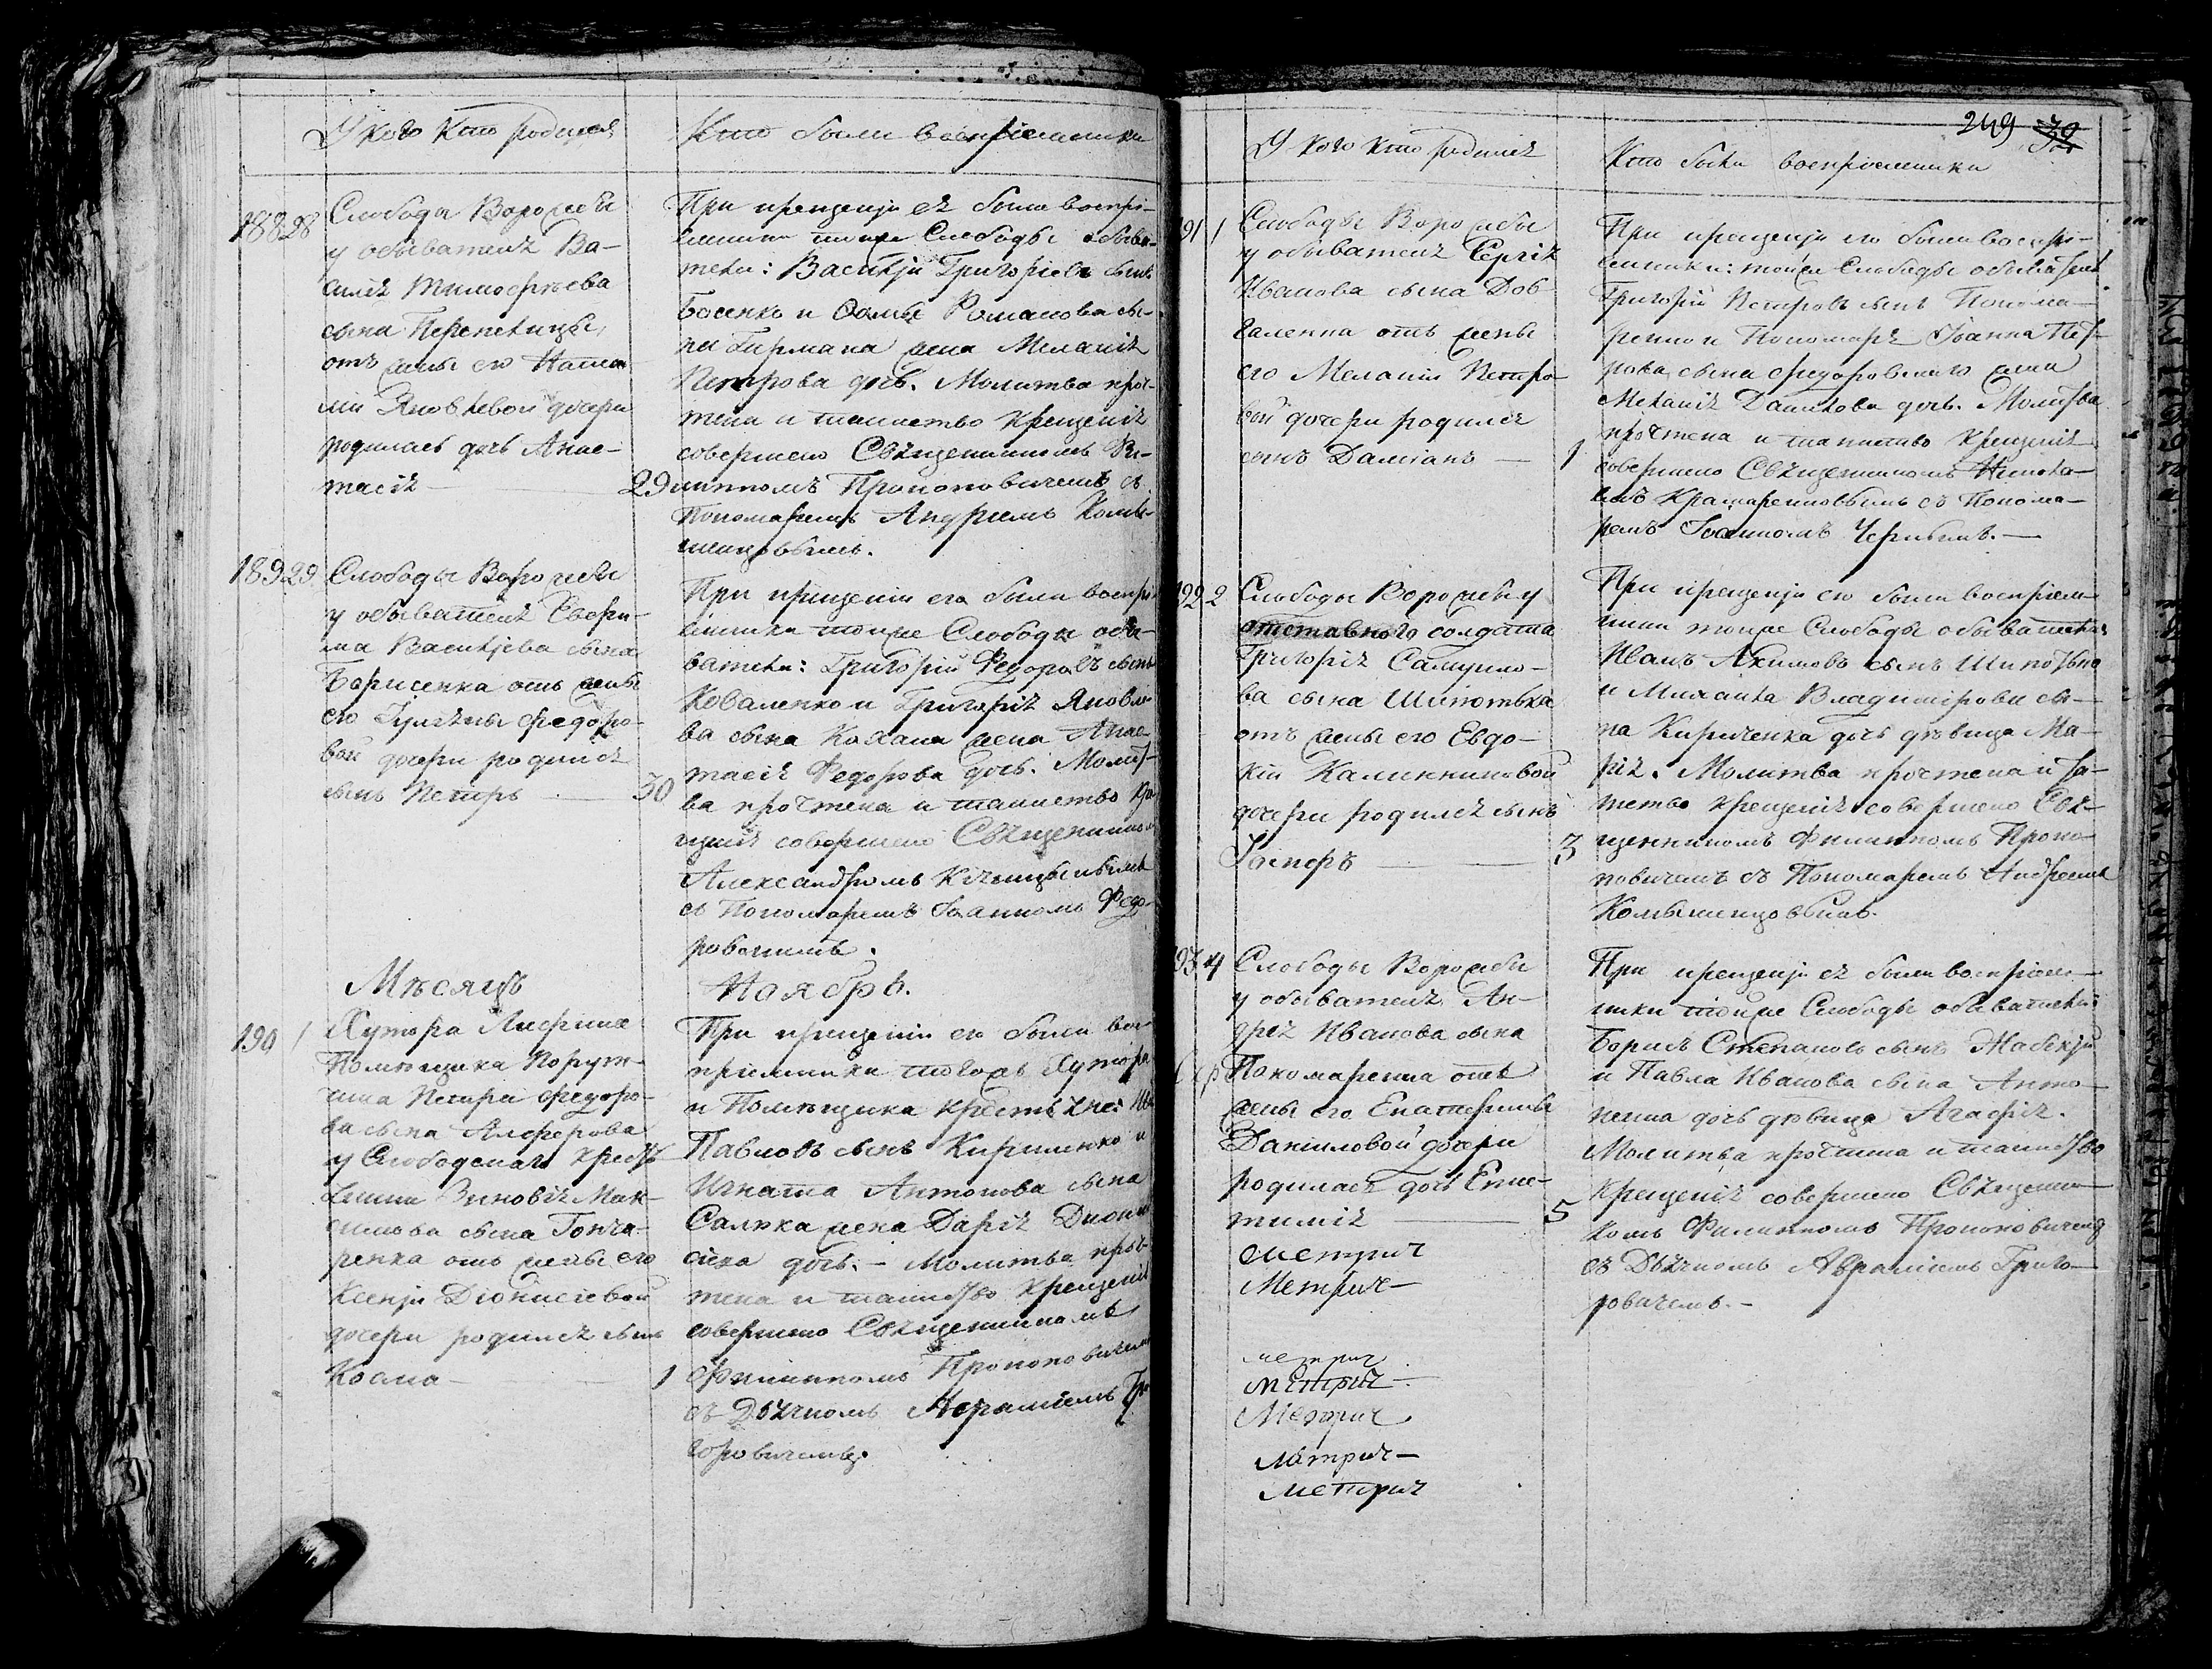 У кого Кто родился
Кто были воспріемники
188 28
Слободы Ворожбы
у обывателя Ва-
силія Тимофѣева
сына Перепелицы,
отъ жены его
Яковлевой дочери
родилась дочь Анас-
тасія — 29
При крещеніи ея были воспрі-
емники тойже Слободы обыва-
тели: Василій Григоріевъ сынъ
Босенко и Фомы Романова сы-
на Гирмана жена Меланія
Петрова дочь. Молитва проч-
тена и таинство крещенія
совершено Священникомъ Фи-
липпомъ Прокоповичемъ съ
Пономаремъ Андреемъ
189 29
Слободы Ворожбы
у обывателя
ма Василіева сына
Борисенка отъ жены
его Федоро-
вой дочери родился
сынъ Петръ — 30
При крещеніи его были воспрі-
емники тойже Слободы обы-
ватели: Григорій Федоровъ сынъ
Коваленко и Григорія Яковле-
ва сына жена Анас-
тасія Федорова дочь. Молит-
ва прочтена и таинство кре-
щенія совершено Священникомъ
Александромъ
съ Пономаремъ Іоанномъ Федо-
ровскимъ.
Мѣсяцъ Ноябрь.
190 1
Хутора
Помѣщика Порут-
чика Петра Федоро-
ва сына Алферова
у крестья-
нина Зиновія Мак-
симова сына Гонча-
ренка отъ жены его
Ксеніи Діонисіевой
дочери родился сынъ
Косма — 1
При крещеніи его были вос-
пріемники тогожъ Хутора
и Помѣщика крестьяне:
Павловъ сынъ Кириленко и
Игната Антонова сына
жена Дарія Діони-
сіева дочь. — Молитва проч-
тена и таинство крещенія
совершено Священникомъ
Филиппомъ Прокоповичемъ
съ Дьячкомъ Авраміемъ Гри-
горовичемъ.
249
У кого кто родился
Кто были воспріемники
191 1
Слободы Ворожбы
у обывателя Сергія
Иванова сына Дов-
галенка отъ жены
его Меланіи Петро-
вой дочери родился
сынъ Даміанъ — 1
При крещеніи его были воспрі-
емники: тойже Слободы обыватель
Григорій Петровъ сынъ Понома-
ренко и Пономаря Іоанна Пет-
рова сына Федоровскаго жена
Меланія Данилова дочь. Молитва
прочтена и таинство крещенія
совершено Священникомъ Никола-
емъ Крамаренковымъ съ Понома-
ремъ Іоанномъ
192 2
Слободы Ворожбы у
отставного солдата
Григорія Самуило-
ва сына Шипотька
отъ жены его Евдо-
кіи Калинниковой
дочери родился сынъ
3
При крещеніи его были воспріем-
ники тойже Слободы обыватели:
Иванъ Акимовъ сынъ Шипотько
и Михаила Владимірова сы-
на Кириченка дочь дѣвица Ма-
рія. Молитва прочтена и та-
инство крещенія совершено Свя-
щенникомъ Филиппомъ Проко-
повичемъ съ Пономаремъ Андреемъ
193 4
Слободы Ворожбы
у обывателя Ан-
дрея Иванова сына
Пономаренка отъ
жены его Екатерины
Даніиловой дочери
родилась дочь Епис-
тимія — 5
При крещеніи ея были воспріем-
ники тойже Слободы обыватели:
Борисъ Степановъ сынъ
и Павла Иванова сына Анто-
ненка дочь дѣвица Агафія.
Молитва прочтена и таинство
крещенія совершено Священни-
комъ Филиппомъ Прокоповичемъ
съ Дьячкомъ Авраміемъ Григо-
ровичемъ. —
Метрич
Метрич—
метрич
Метрич—
Метрич
Метрич—
Метрич